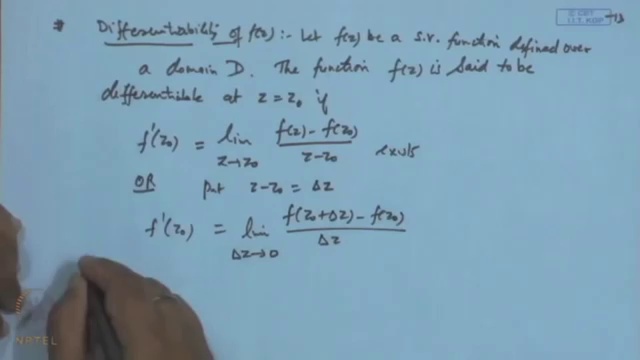 * Differentiability of f(z) :- Let f(z) be a s.v. function defined over
a domain D. The function f(z) is said to be
differentiable at z = z₀ if
f'(z₀) = lim z→z₀ f(z) - f(z₀) / z - z₀ exists
OR put z - z₀ = Δz
f'(z₀) = lim Δz→0 f(z₀+Δz) - f(z₀) / Δz
© CET
I.I.T. KGP
NPTEL